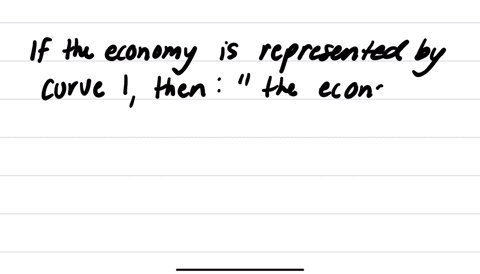 If the economy is represented by
curve 1, then : " the econ